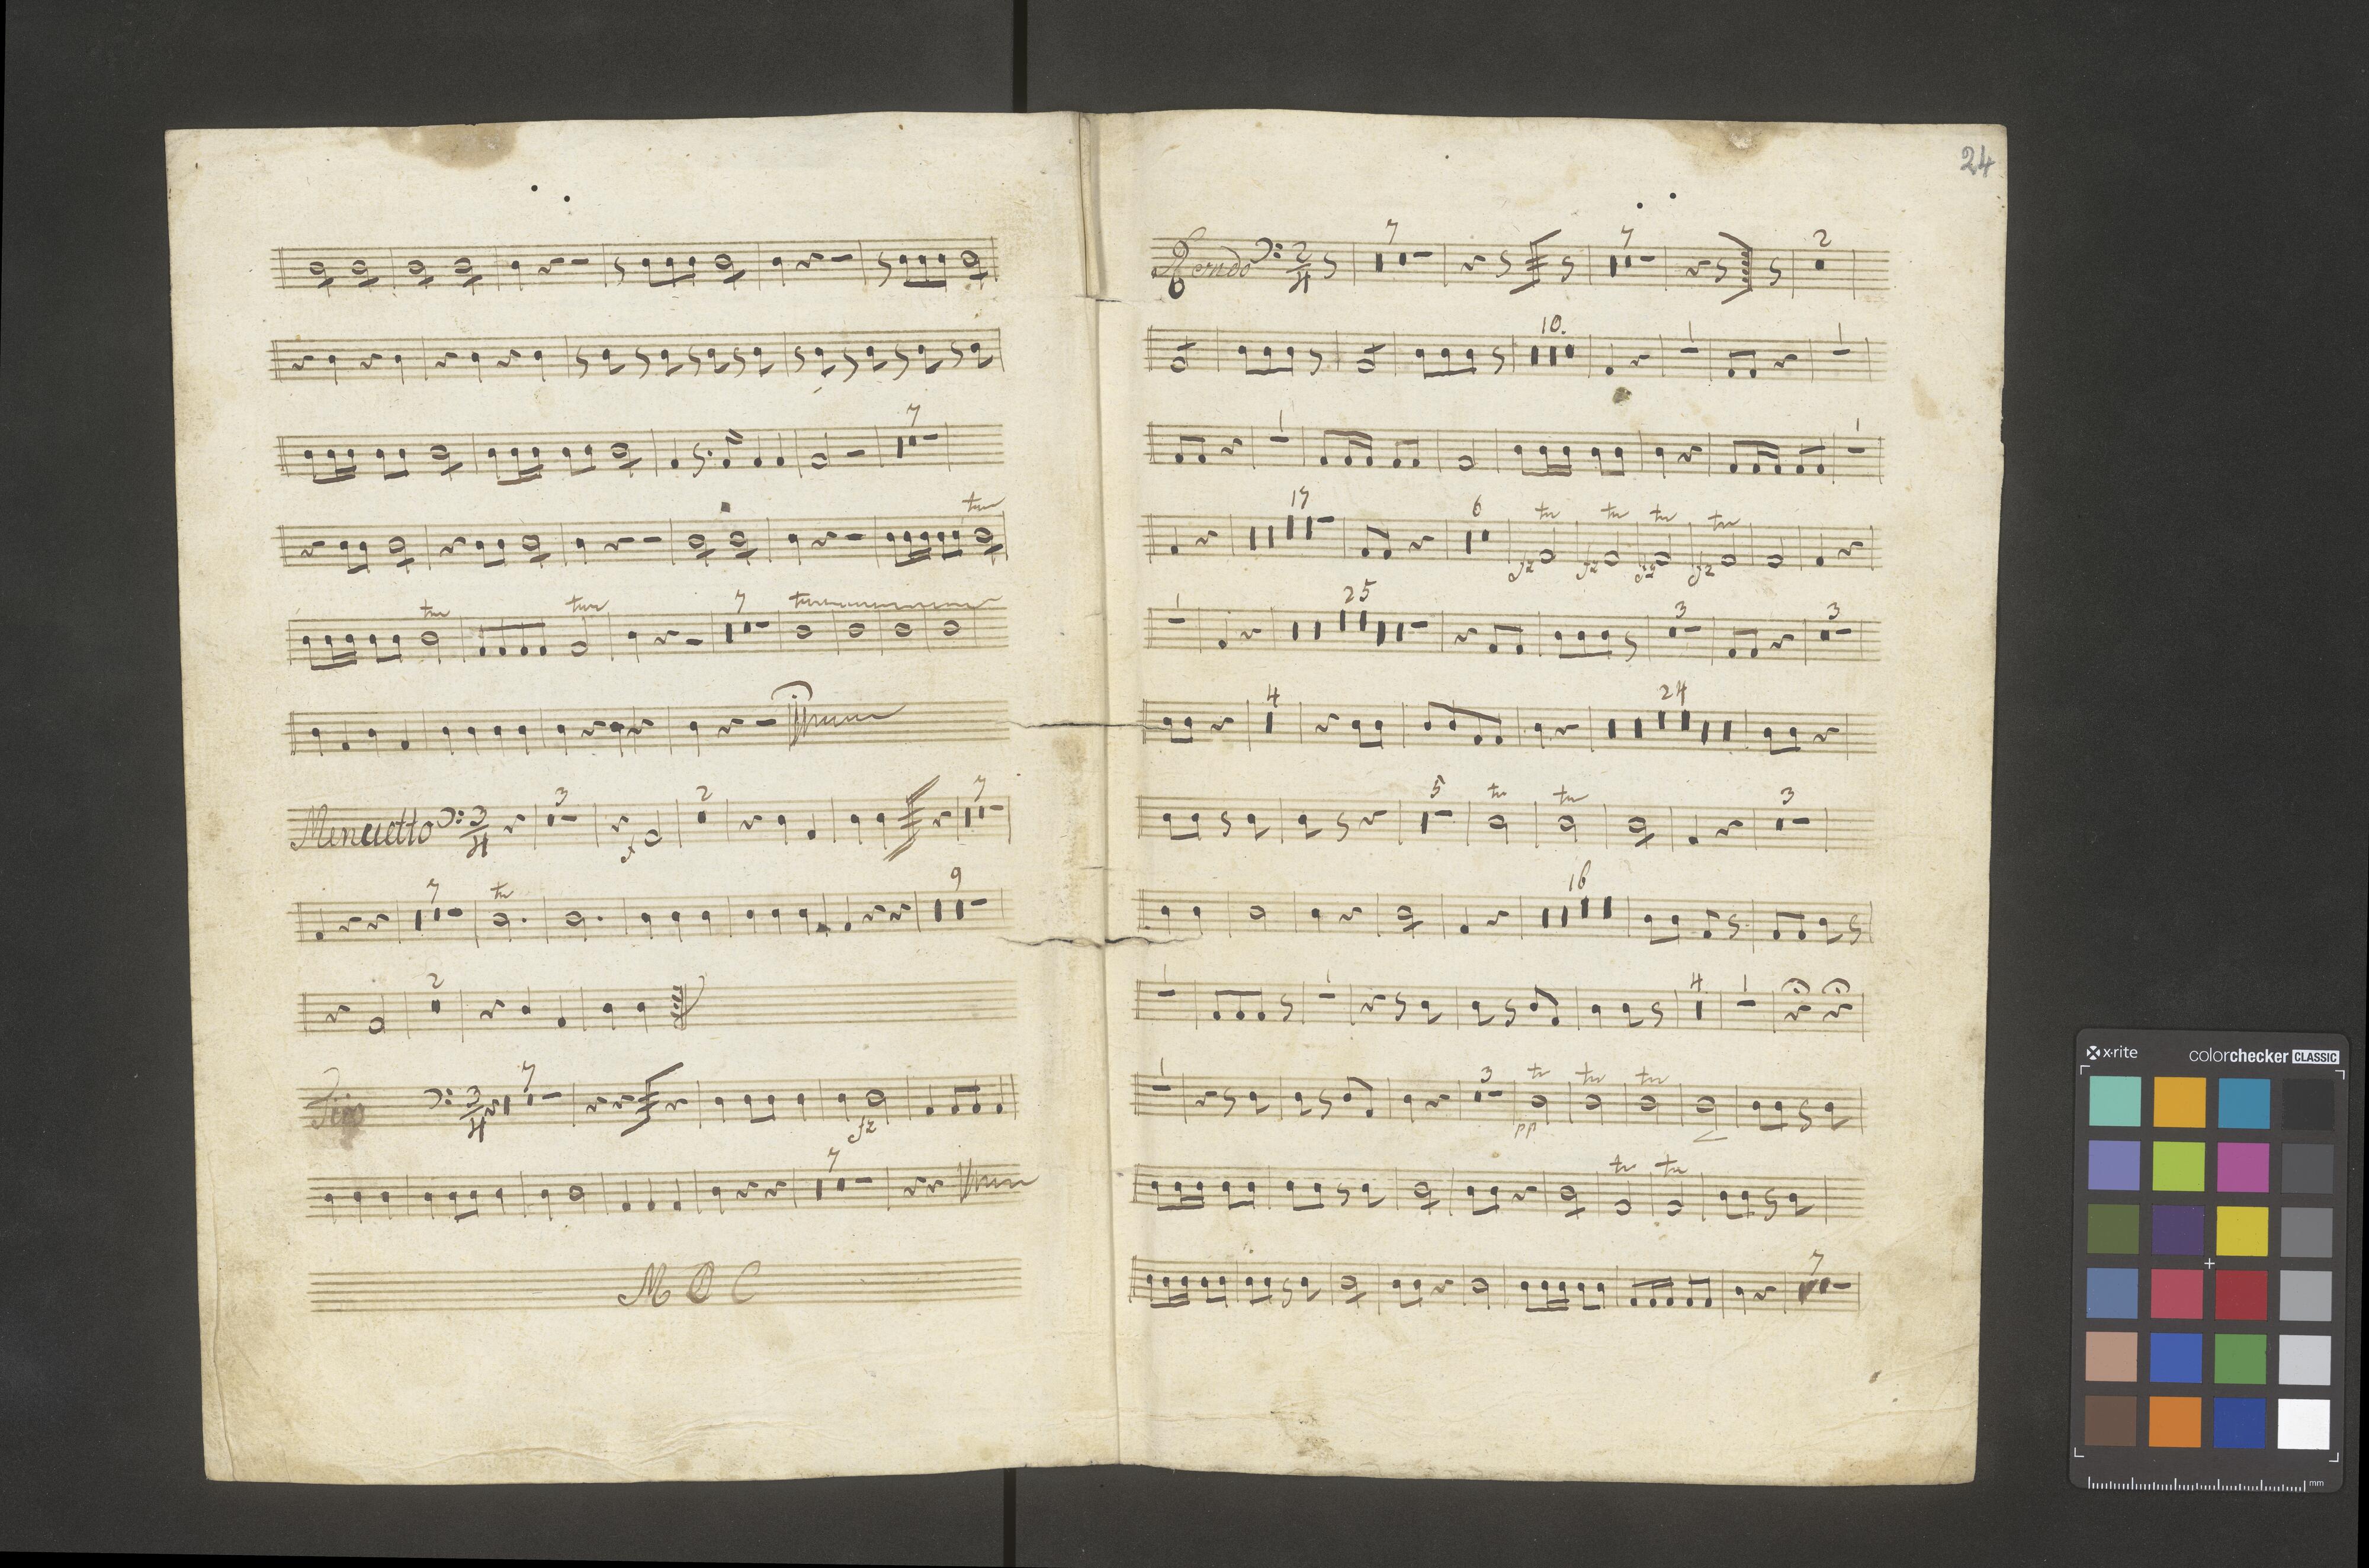 7
tr
tr
tr
7
tr
Menuetto 3/4
3
2
7
f
7
tr
9
2
Trio 3/4
7
fz
7
M D C
24
Rondo 2/4
7
7
2
10.
1
1
1
1
17
6
tr
tr
tr
tr
fz
fz
fz
fz
1
25
3
3
4
24
5
tr
tr
3
16
1
1
4
1
1
3
tr
tr
tr
pp
tr
tr
7
x-rite
colorchecker CLASSIC
mm